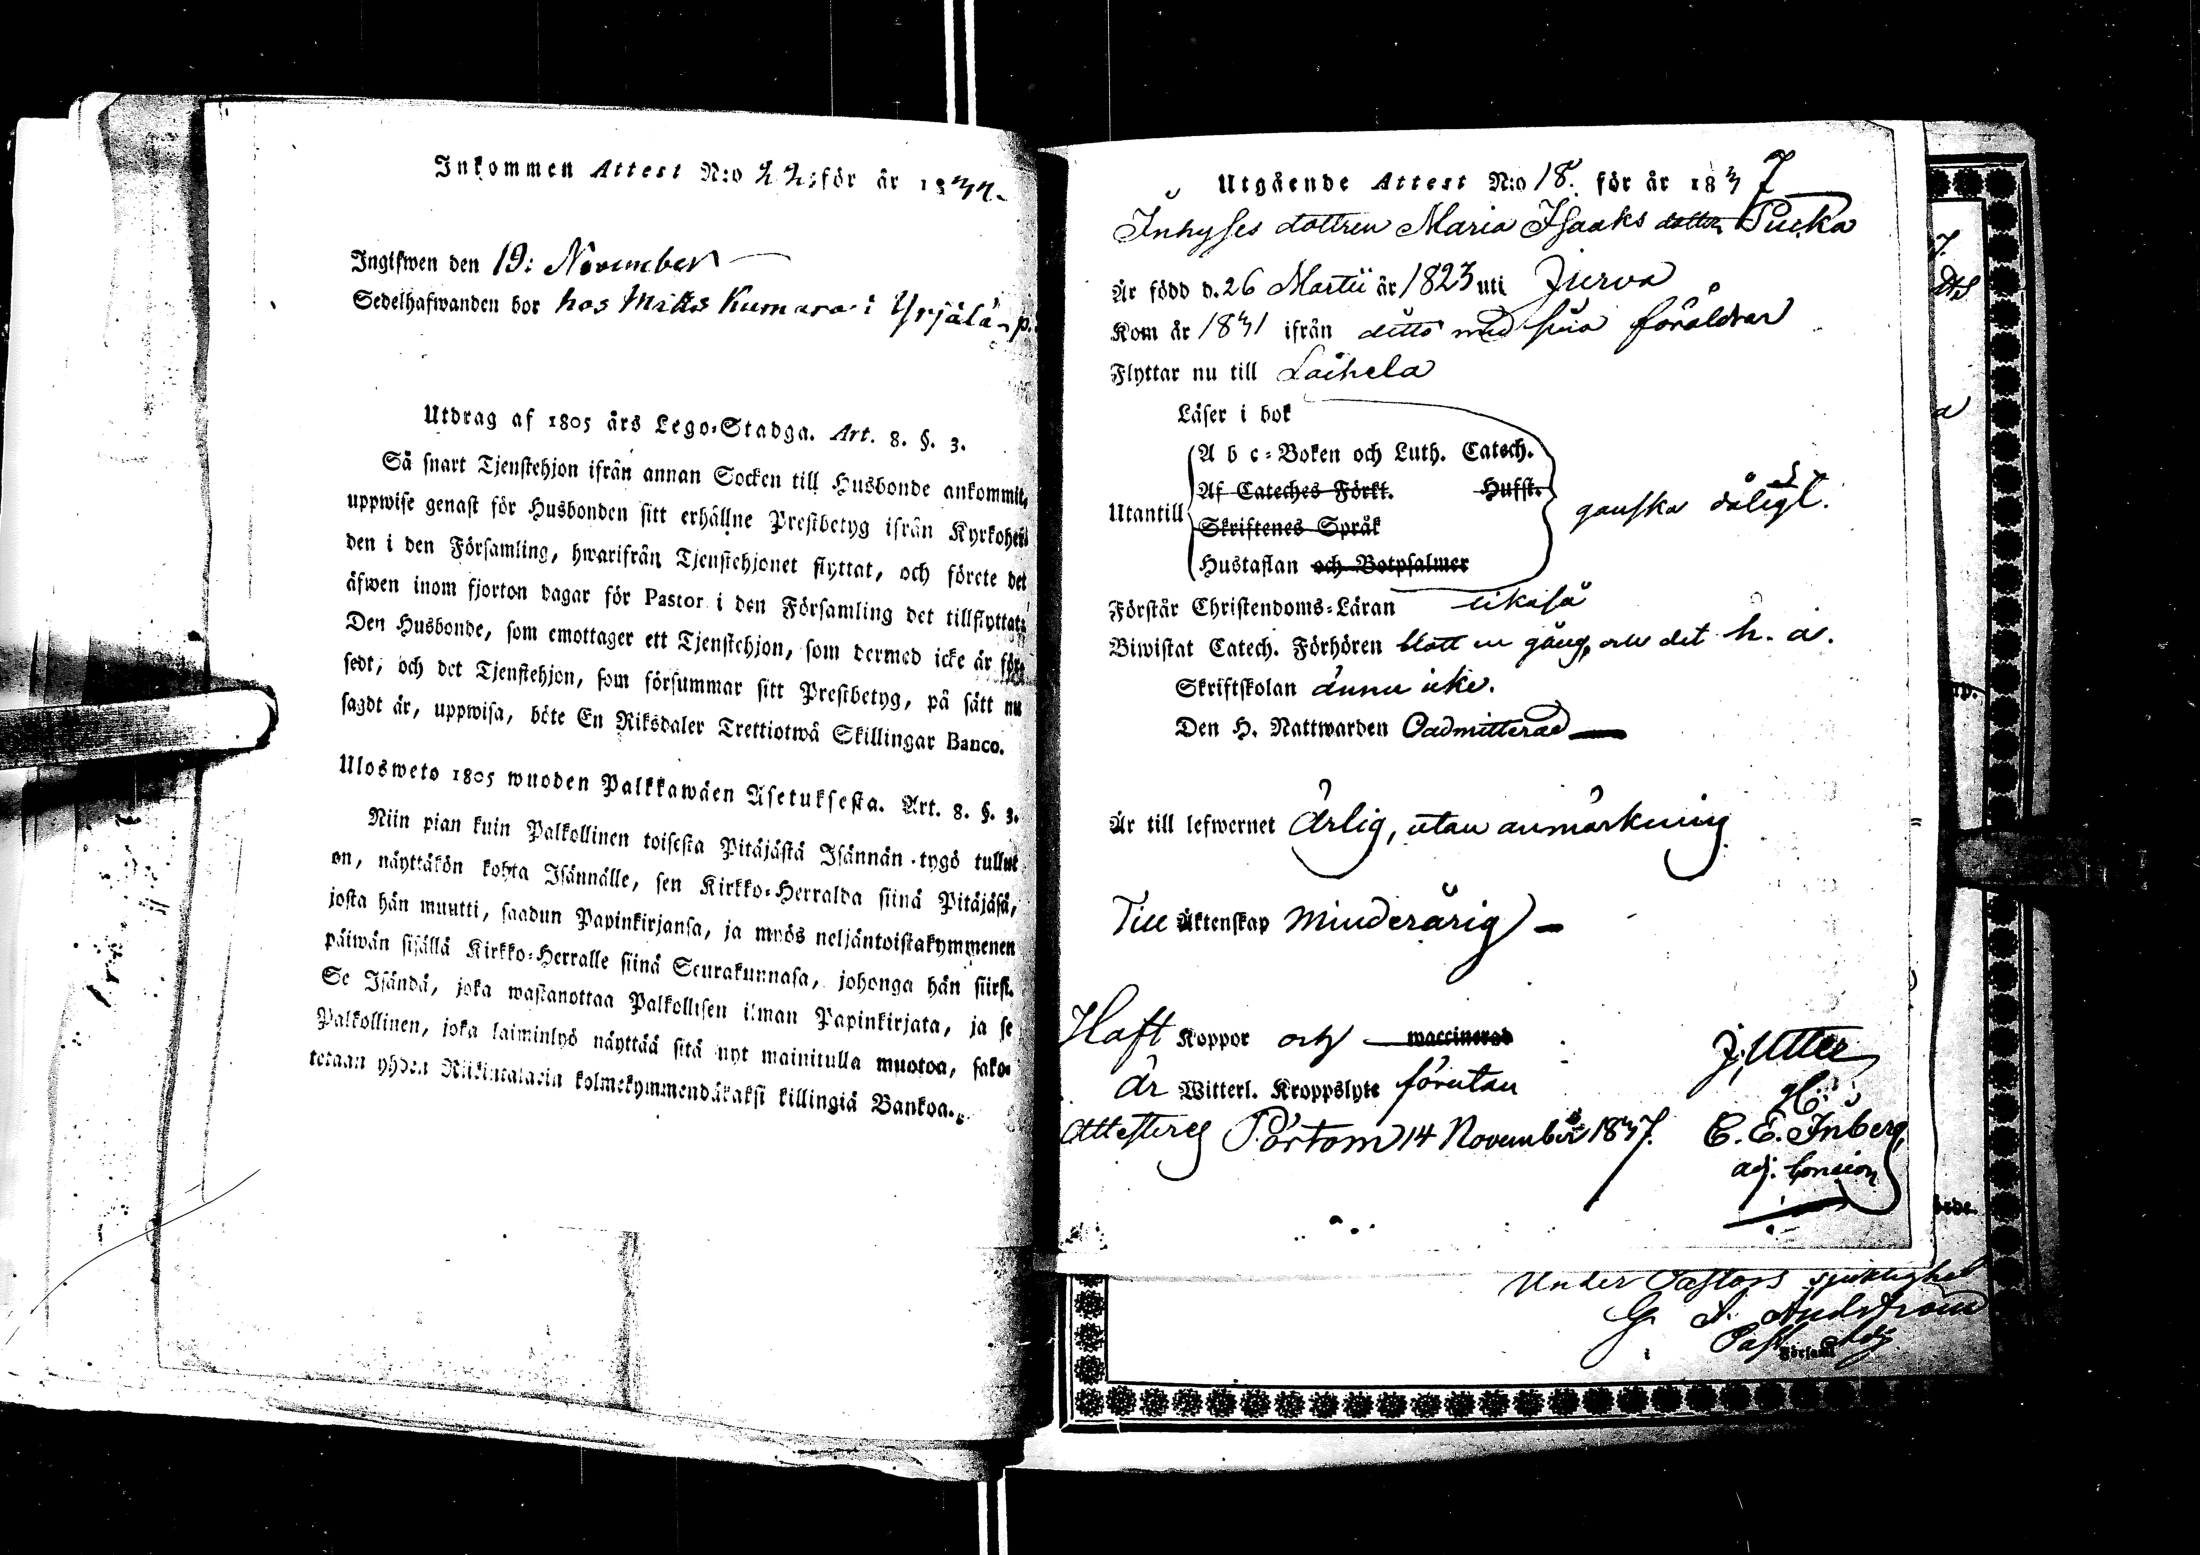 Inkommen Attest N:o 22: för år 1837.
Ingifwen den 19: November
Sedelhafwanden bor hos Mitts Kumara i Yrjälä
Utdrag af 1805 års Lego-Stadga. Art. 8. §. 3.
Så snart Tjenstehjon ifrån annan Socken till Husbonde ankommit,
uppwise genast för Husbonden sitt erhållne Prestbetyg ifrån Kyrkoher
den i den Församling, hwarifrån Tjenstehjonet flyttat, och förete det
äfwen inom fjorton dagar för Pastor i den Församling det tillflyttat.
Den Husbonde, som emottager ett Tjenstehjon, som dermed icke är för
sedt, och det Tjenstehjon, som försummar sitt Prestbetyg, på sätt nu
sagdt är, uppwisa, böte En Riksdaler Trettiotwå Skillingar Banco.
Ulosweto 1805 wuoden Palkkawäen Asetuksesta. Art. 8. §. 3.
Niin pian kuin Palkollinen toisesta Pitäjästä Isännän tygö tullut
on, näyttäkön kohta Isännälle, sen Kirkko-Herralda siinä Pitäjäsä,
josta hän muutti, saadun Papinkirjansa, ja myös neljäntoistakymmenen
päiwän sisällä Kirkko-Herralle siinä Seurakunnasa, johonga hän siirsi.
Se Isändä, joka wastanottaa Palkollisen ilman Papinkirjata, ja se
Palkollinen, joka laiminlyö näyttää sitä nyt mainitulla muotoa, sako-
tetaan yhden Riikintalarin kolmekymmendäkaksi killingiä Bankoa.
Utgående Attest N:o 18. för år 1837
Inhyses dottren Maria Isaaks dotter Pucka
Är född d. 26 Martii år 1823 uti Jurva
Kom år 1831 ifrån ditto med sina föräldrar
Flyttar nu till Laihela
Läser i bok
A b c-Boken och Luth. Catech.
Af Cateches Förkl. Hufst.
Utantill ganska dåligt.
Skriftenes Språk
Hustaflan och Botpsalmer
Förstår Christendoms-Läran likaså
Biwistat Catech. Förhören blott en gång, och det h. å.
Skriftskolan ännu icke.
Den H. Nattwarden Oadmitterad
Är till lefwernet ärlig, utan anmärkning
Till Äktenskap minderårig
Haft Koppor och waccinerad
J. Utter
är Witterl. Kroppslyte förutan
Attesteras Pörtom 14 November 1837. C. E. Inberg
adj. Concion
Under Pastors sjuklighet
G. A. Andström
Past. Adj.
i Församl